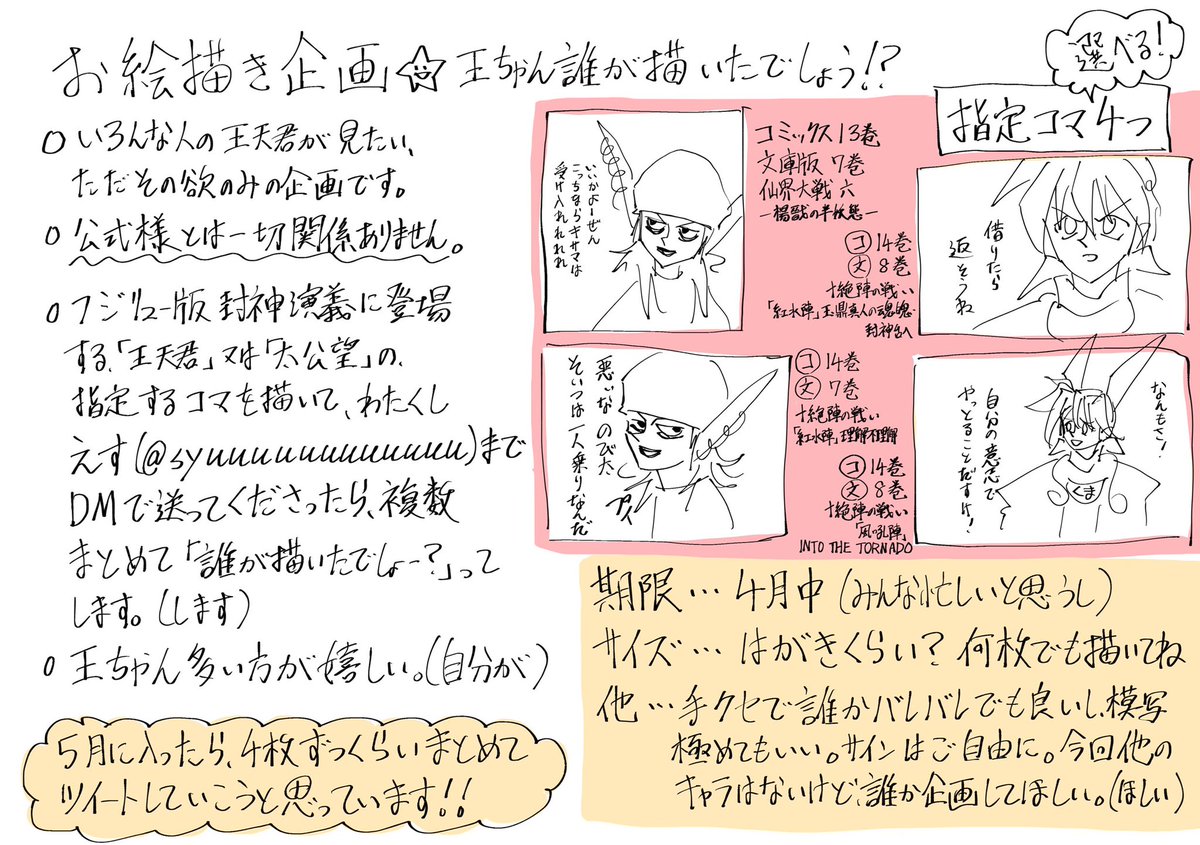 お絵描き企画☆王ちゃん誰が描いたでしょう!?
○いろんな人の王天君が見たい、
ただその欲のみの企画です。
○公式様とは一切関係ありません。
○フジリュー版 封神演義に登場
する、「王天君」又は「太公望」の、
指定するコマを描いて、わたくし
えす(@syuuuuuuuuuuuu)まで
DMで送ってくださったら、複数
まとめて「誰が描いたでしょー?」って
します。(します)
○王ちゃん多い方が嬉しい。(自分が)
5月に入ったら、4枚ずっくらいまとめて
ツイートしていこうと思っています!!
選べる!
指定コマ4つ
いーかよーぜん
こっちならキサマは
受け入れれれ
コミックス13巻
文庫版 7巻
仙界大戦 六
ー楊戩の半妖態ー
借りたら
返そうね
コ 14巻
文 8巻
十絶陣の戦い
「紅水陣」玉鼎真人の魂魄
封神台へ
悪いなのび太
そいつは一人乗りなんだ
プイ
コ 14巻
文 7巻
十絶陣の戦い
「紅水陣」理解不理解
なんもさ!
自分の意志で
やっとることだすけ!
くま
コ 14巻
文 8巻
十絶陣の戦い
「風吼陣」
INTO THE TORNADO
期限…4月中(みんな忙しいと思うし)
サイズ…はがきくらい?何枚でも描いてね
他…手クセで誰かバレバレでも良いし、模写
極めてもいい。サインはご自由に。今回他の
キャラはないけど、誰か企画してほしい。(ほしい)